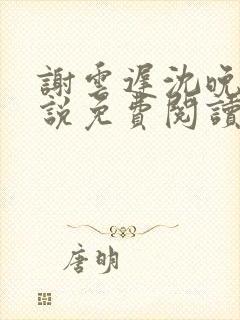 謝雲遲沈晚
說免費閱讀
唐明